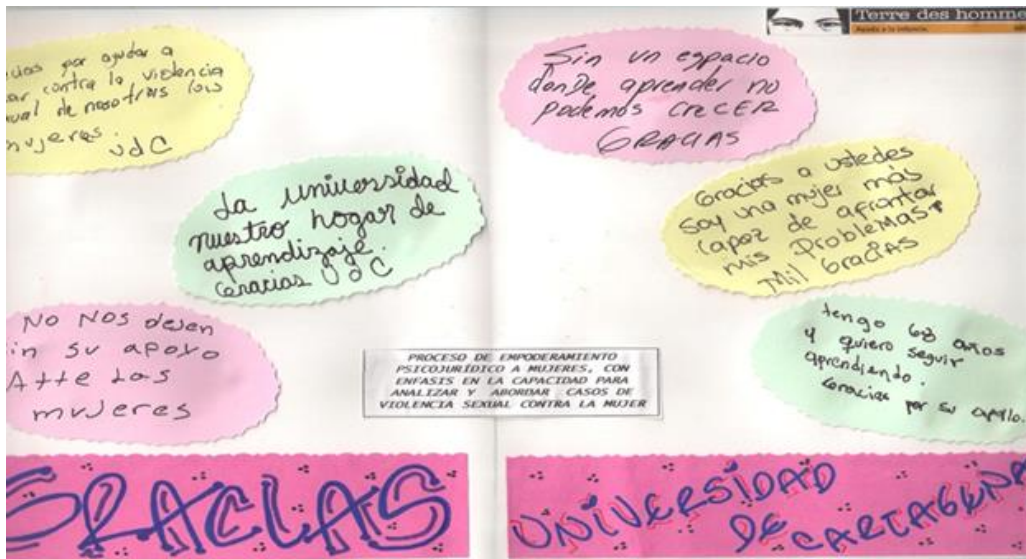 Terre des homme
Ayuda a la infancia.
cias por ayudar a
ar contra la violencia
ual de nosotras las
mujeres. UdC
Sin un espacio
donDe aprender no
podemos CRECER
GRACIAS
La universidad
nuestro hogar de
aprendizaje.
Gracias UdC
Gracias a ustedes
soy una mujer más
capaz de afrontar
mis Problemas
Mil GraciAS
NO NOS dejen
in su apoyo
Atte Las
mujeres
PROCESO DE EMPODERAMIENTO
PSICOJURÍDICO A MUJERES, CON
ENFASIS EN LA CAPACIDAD PARA
ANALIZAR Y ABORDAR CASOS DE
VIOLENCIA SEXUAL CONTRA LA MUJER
tengo 68 años
y quiero seguir
aprendiendo.
Gracias por su apollo.
GRACIAS
UNIVERSIDAD
DE CARTAGENA